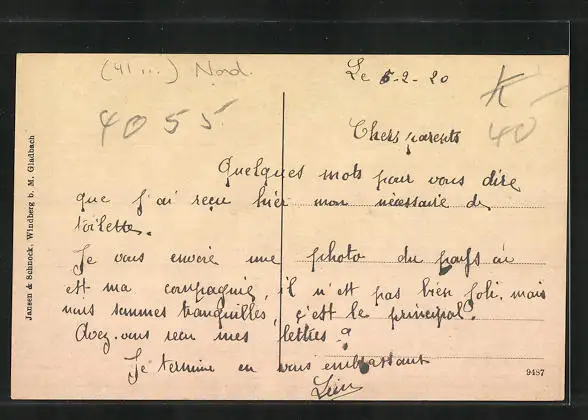 (41 ...) Nord.
Le 5-2-20
K
4055
40
Chers parents
Quelques mots pour vous dire
que j'ai reçu hier mon nécessaire de
toilette.
Je vous envoie une photo du pays où
est ma compagnie, il n'est pas bien joli, mais
nous sommes tranquilles, c'est le principal.
Avez-vous reçu mes lettres ?
Je termine en vous embrassant
Jansen & Schnock, Windberg b. M. Gladbach
9487